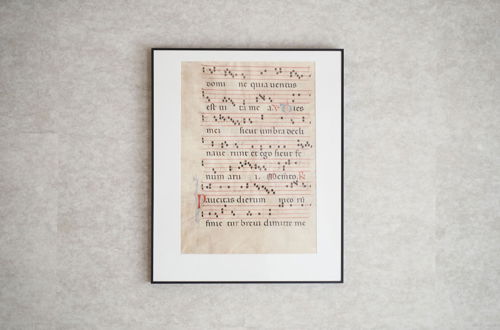 domi ne quia ventus
est vi ta me a. V Dies
mei sicut umbra decli
nave runt et ego sicut fe
num aru i. Memto. R
Paucitas dierum meo rū
finie tur brevi dimitte me